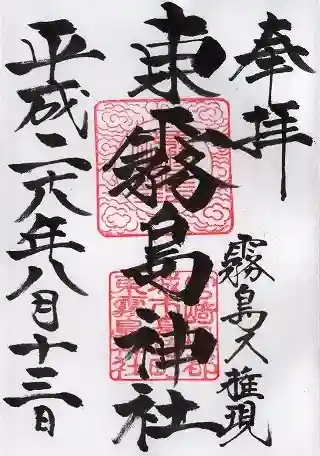 奉拝
霧島六権現
東霧島神社
平成二六年八月十三日